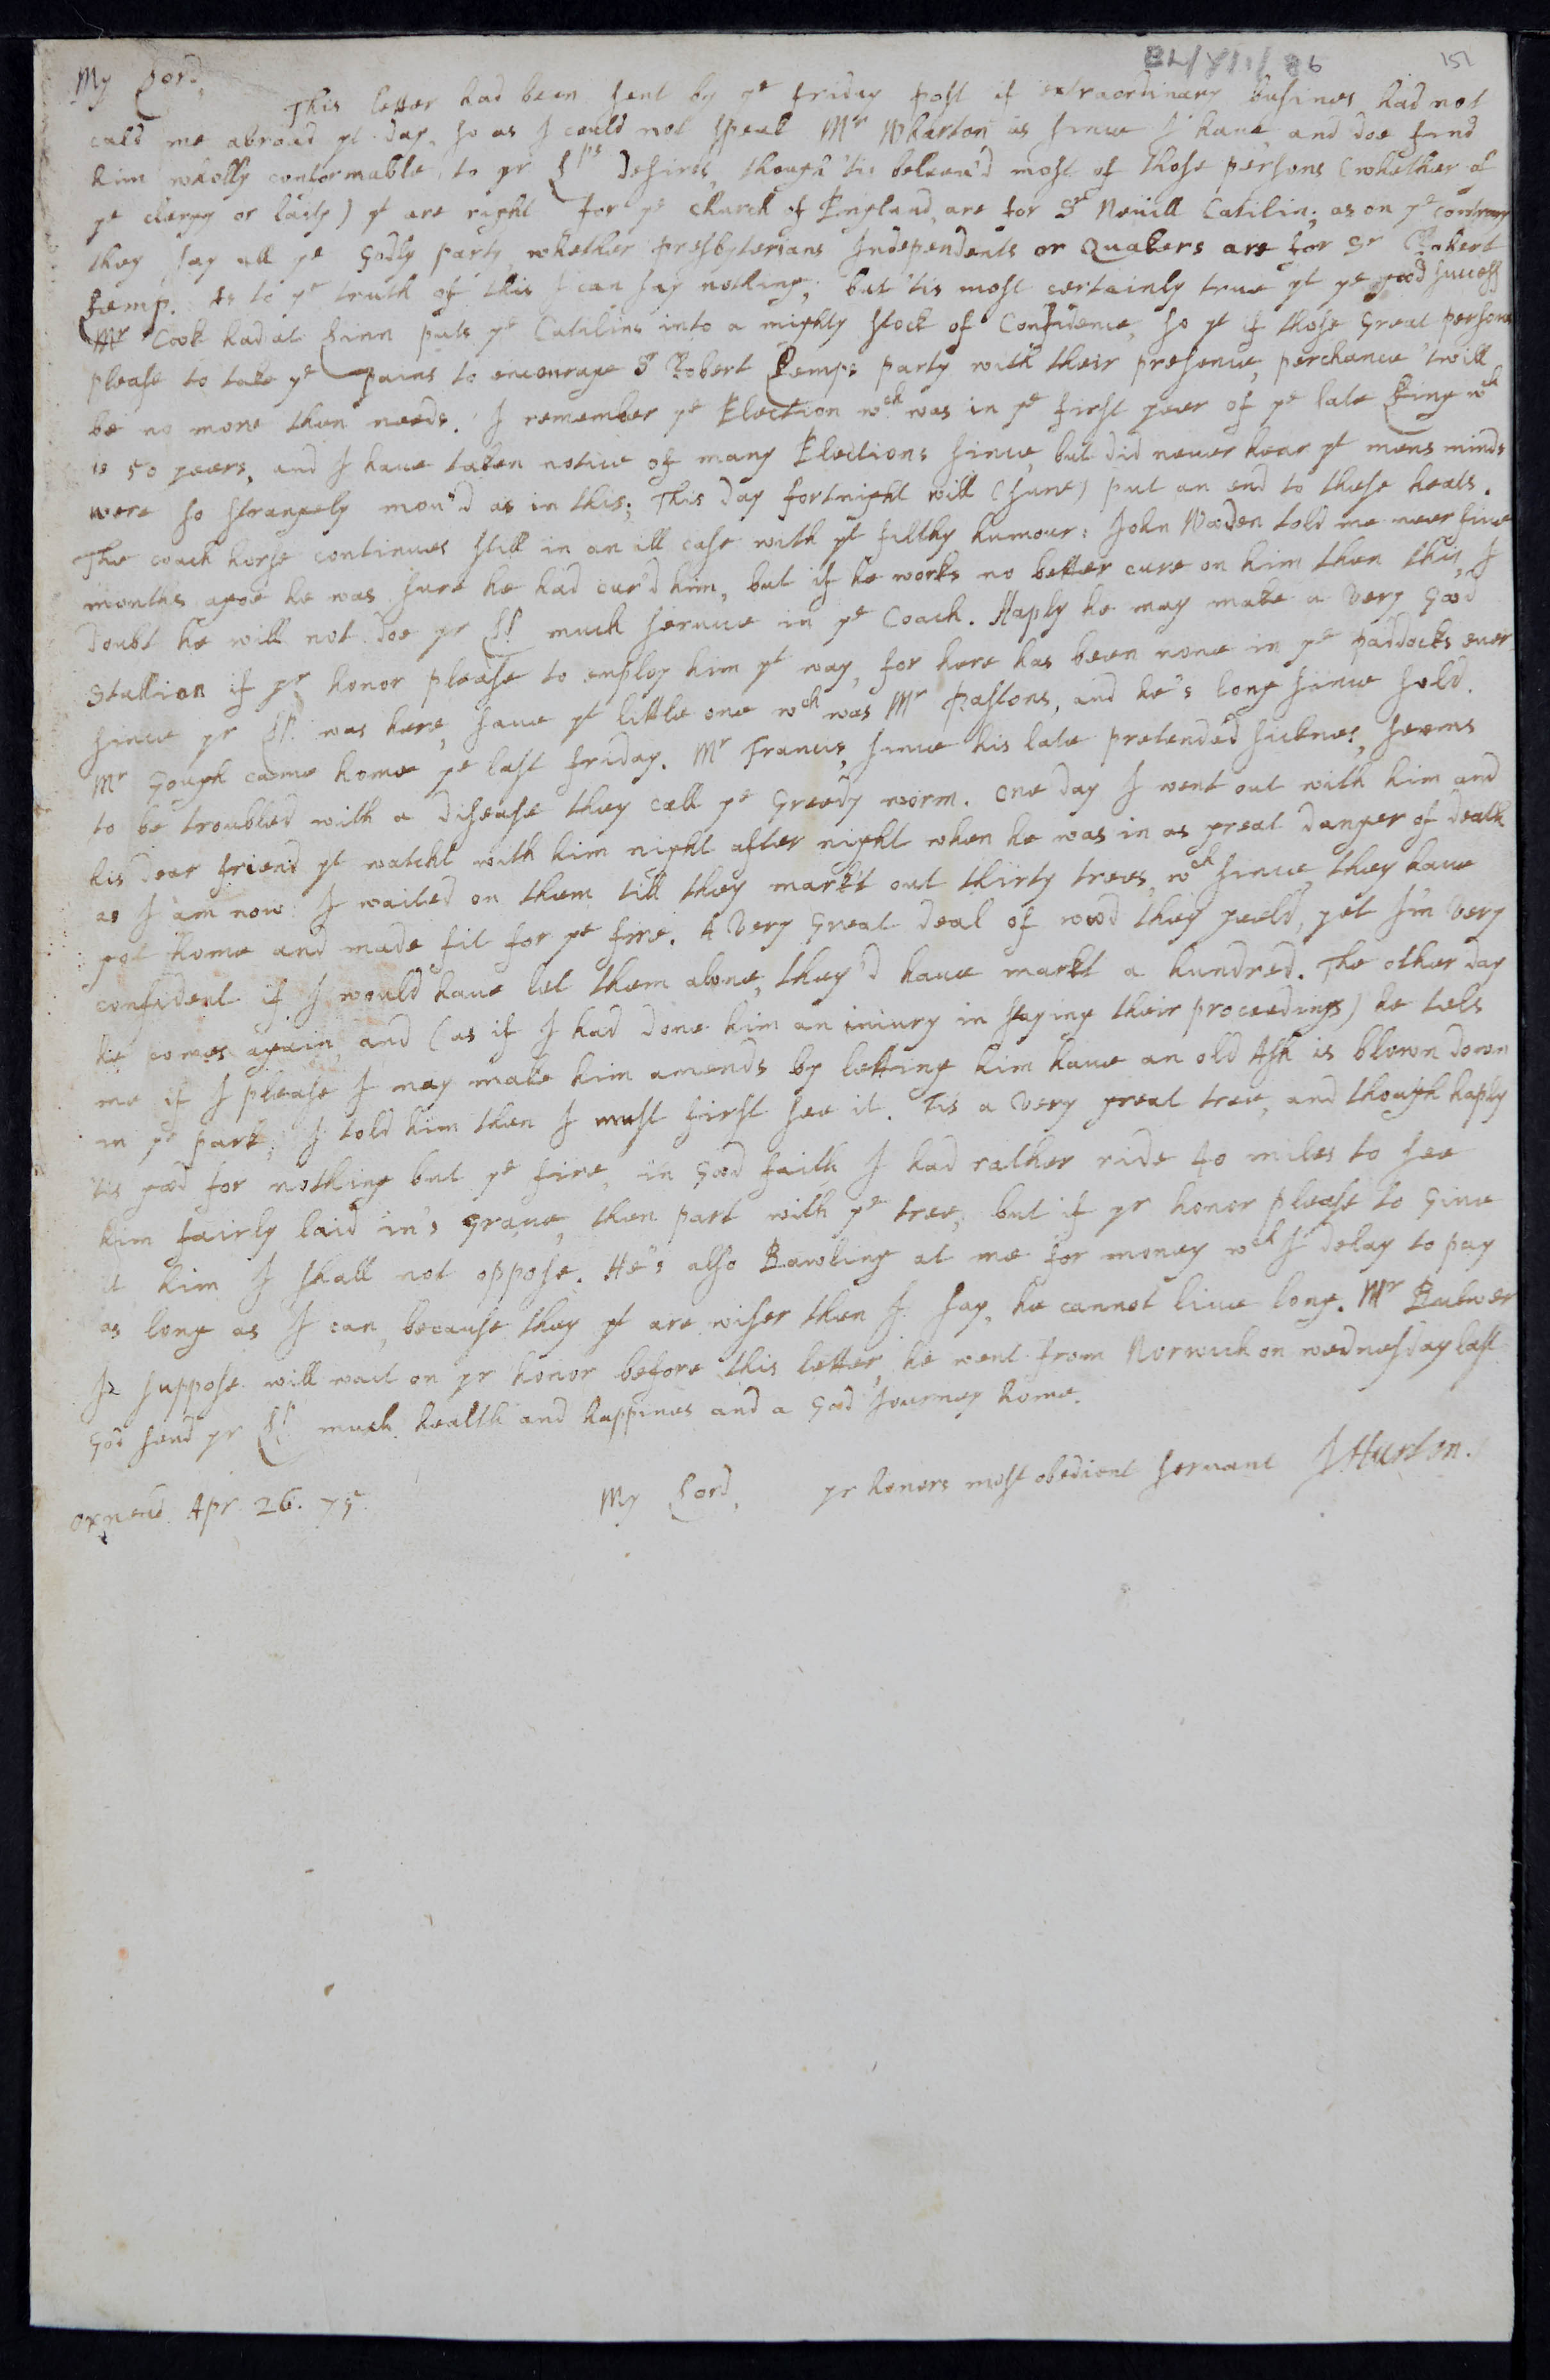 BL/Y/1/86
151
My Lord,
This letter had been sent by ye friday post if extraordinary busines had not
cald me abroad yt day, so as I could not speak Mr Wharton as since I have, and doe find
him wholly conformable to yr Lps desires, though 'tis beleeu'd most of those persons (whether of
ye clergy or laity) yt are right for ye church of England, are for Sr Neuill Catilin; as on ye contrary
they say all ye Godly party whether Presbyterians Independents or Quakers are for Sr Robert
Kemp. As to ye truth of this I can say nothing; but 'tis most certainly true yt ye good success
Mr Cook had at Linn puts ye Catilins into a mighty stock of Confidence, so yt if those Great persons
please to take ye pains to encourage Sr Robert Kemps party with their presence, perchance 'twill
be no more then needs. I remember ye Election wch was in ye first year of ye late King wch
is 50 yeers, and I haue taken notice of many Elections since, but did neuer hear yt mens minds
were so strangely mou'd as in this; This day fortnight will (sure) put an end to these heats.
The coach horse continues still in an ill case with yt filthy humour: John Wooden told me neer fiue
months agoe he was sure he had cur'd him, but if he works no better cure on him then this, I
Doubt he will not doe yr Lp much seruice in ye Coach. Haply he may make a very Good
Stallion if yr honor please to employ him yt way, for here has been none in ye paddocks euer
since yr Lp was here, saue yt little one wch was Mr Pastons, and he's long since sold.
Mr Gough came home ye last friday. Mr Francis, since his late pretended sicknes, seems
to be troubled with a disease they call ye Greedy worm. One day I went out with him and
his dear friend yt watcht with him night after night when he was in as great danger of death
as I am now: I waited on them till they markt out thirty trees, wch since they haue
got home and made fit for ye fire. A very Great deal of wood they yeeld, yet I'm very
confident if I would haue let them alone, they'd haue markt a hundred. The other day
he comes again, and (as if I had done him an iniury in staying their proceedings) he tels
me if I please I may make him amends by letting him haue an old Ash is blown down
in ye park; I told him then I must first see it. Tis a very great tree, and though haply
'tis good for nothing but ye fire, in Good faith I had rather ride 40 miles to see
him fairly laid in's Graue, then part with ye tree, but if yr honor please to Giue
it him I shall not oppose. He's also Bawling at me for money wch I delay to pay
as long as I can, because they yt are wiser then I say, he cannot liue long. Mr Bulwer
I suppose will wait on yr honor before this letter, he went from Norwich on wednesday last
God send yr Lp much health and happines and a Good Journey home.
My Lord, yr honors most obedient seruant J Hurton.
Oxnead Apr. 26. 75